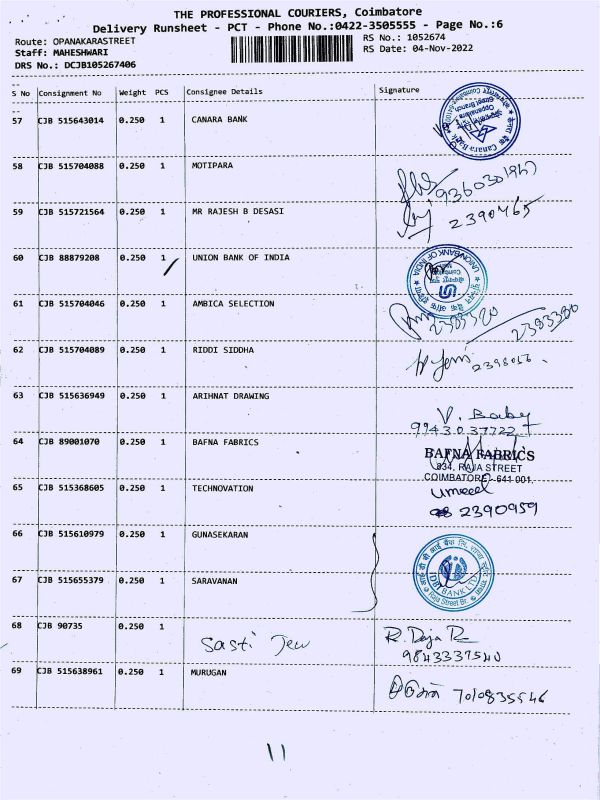 THE PROFESSIONAL COURIERS, Coimbatore
Delivery Runsheet - PCT - Phone No.:0422-3505555 - Page No.:6
Route: OPANAKARASTREET RS No.: 1052674
Staff: MAHESHWARI RS Date: 04-Nov-2022
DRS No.: DCJB105267406
S No Consignment No Weight PCS Consignee Details Signature
57 CJB 515643014 0.250 1 CANARA BANK
58 CJB 515704088 0.250 1 MOTIPARA
59 CJB 515721564 0.250 1 MR RAJESH B DESASI
2390465
60 CJB 88879208 0.250 1 UNION BANK OF INDIA
UNION BANK OF INDIA
61 CJB 515704046 0.250 1 AMBICA SELECTION
62 CJB 515704089 0.250 1 RIDDI SIDDHA
63 CJB 515636949 0.250 1 ARIHNAT DRAWING
V. Baby
64 CJB 89001070 0.250 1 BAFNA FABRICS
BAFNA FABRICS
934, RAJA STREET
COIMBATORE - 641 001.
65 CJB 515368605 0.250 1 TECHNOVATION
2390959
66 CJB 515610979 0.250 1 GUNASEKARAN
IDBI BANK LTD
Raja Street Br.
67 CJB 515655379 0.250 1 SARAVANAN
68 CJB 90735 0.250 1
Sasti Jew
9843337540
69 CJB 515638961 0.250 1 MURUGAN
7010835546
11